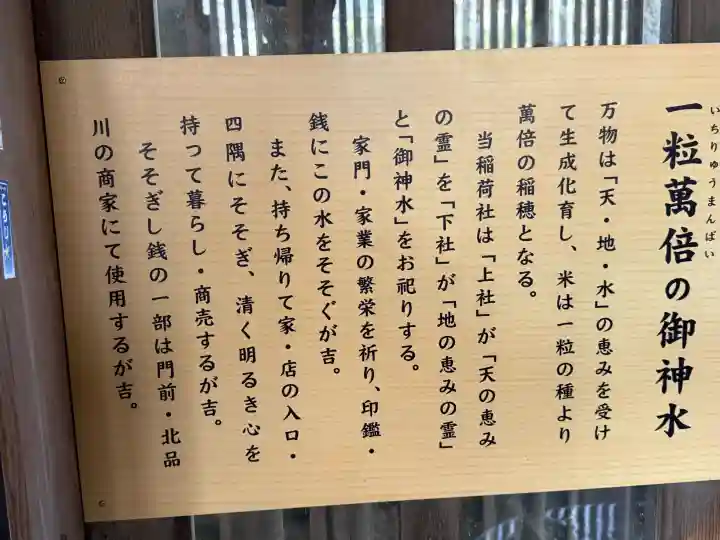 一粒萬倍の御神水
いちりゅうまんばい
万物は「天・地・水」の恵みを受け
て生成化育し、米は一粒の種より
萬倍の稲穂となる。
当稲荷社は「上社」が「天の恵み
の霊」を「下社」が「地の恵みの霊」
と「御神水」をお祀りする。
家門・家業の繁栄を祈り、印鑑・
銭にこの水をそそぐが吉。
また、持ち帰りて家・店の入口・
四隅にそそぎ、清く明るき心を
持って暮らし・商売するが吉。
そそぎし銭の一部は門前・北品
川の商家にて使用するが吉。